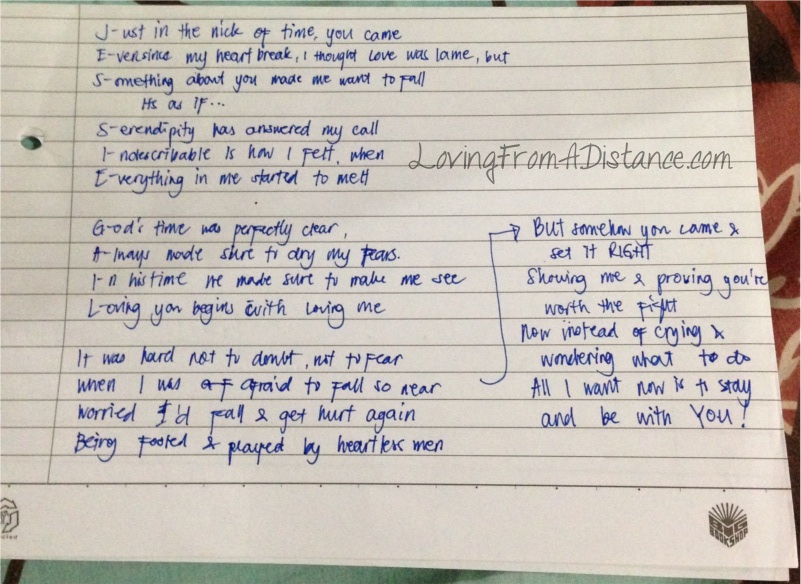 J-ust in the nick of time, you came
E-versince my heart break, I thought love was lame, but
S-omething about you made me want to fall
As as if...
S-erendipity has answered my call
I-ndescribable is how I felt, when
E-verything in me started to melt
LovingFromADistance.com
G-od's time was perfectly clear,
A-lways made sure to dry my tears.
I-n his time he made sure to make me see
L-oving you begins with loving me
It was hard not to doubt, not to fear
when I was afraid to fall so near
worried I'd fall & get hurt again
Being fooled & played by heartless men
But somehow you came &
set it RIGHT
Showing me & proving you're
worth the fight
Now instead of crying &
wondering what to do
All I want now is to stay
and be with YOU!